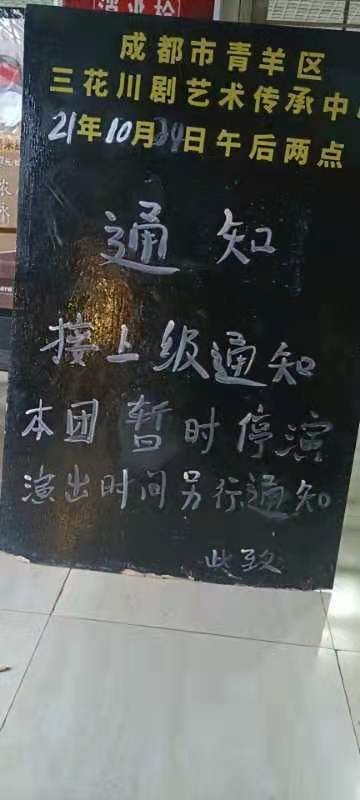 成都市青羊区
三花川剧艺术传承中
21年10月日午后两点
通知
接上级通知
本团暂时停演
演出时间另行通知
此致